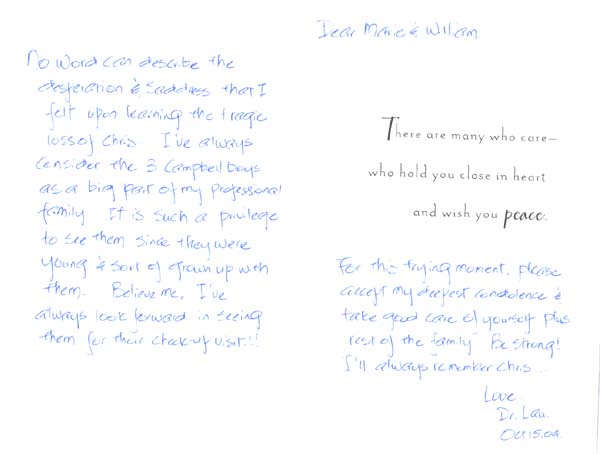 No word can describe the
desperation & saddness that I
felt upon learning the tragic
loss of Chris. I've always
consider the 3 Campbell boys
as a big part of my professional
family. It is such a privilege
to see them since they were
young & sort of grown up with
them. Believe me, I've
always look forward in seeing
them for their check-up visit!!
Dear Marie & William
There are many who care—
who hold you close in heart
and wish you peace.
For this trying moment, please
accept my deepest condolence &
take good care of yourself plus
rest of the family. Be strong!
I'll always remember Chris...
Love
Dr. Lau.
Oct 15.04